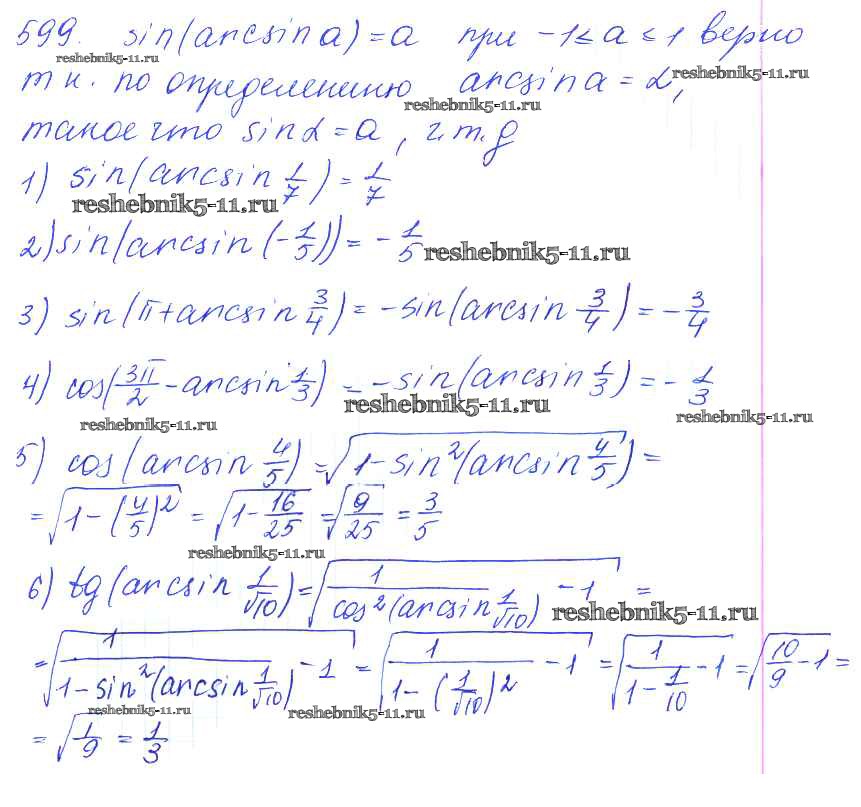 599. sin(arcsin a) = a при -1 ≤ a ≤ 1 верно
reshebnik5-11.ru
reshebnik5-11.ru
т.к. по определению arcsin a = α,
reshebnik5-11.ru
такое что sin α = a, ч.т.д
1) sin(arcsin 1/7) = 1/7
reshebnik5-11.ru
2) sin(arcsin(-1/5)) = -1/5
reshebnik5-11.ru
3) sin(π + arcsin 3/4) = -sin(arcsin 3/4) = -3/4
4) cos(3π/2 - arcsin 1/3) = -sin(arcsin 1/3) = -1/3
reshebnik5-11.ru
reshebnik5-11.ru
reshebnik5-11.ru
5) cos(arcsin 4/5) = √(1 - sin²(arcsin 4/5)) =
= √(1 - (4/5)²) = √(1 - 16/25) = √(9/25) = 3/5
reshebnik5-11.ru
6) tg(arcsin 1/√10) = √(1/(cos²(arcsin 1/√10)) - 1) =
reshebnik5-11.ru
= √(1/(1 - sin²(arcsin 1/√10)) - 1) = √(1/(1 - (1/√10)²) - 1) = √(1/(1 - 1/10) - 1) = √(10/9 - 1) =
reshebnik5-11.ru
reshebnik5-11.ru
= √(1/9) = 1/3